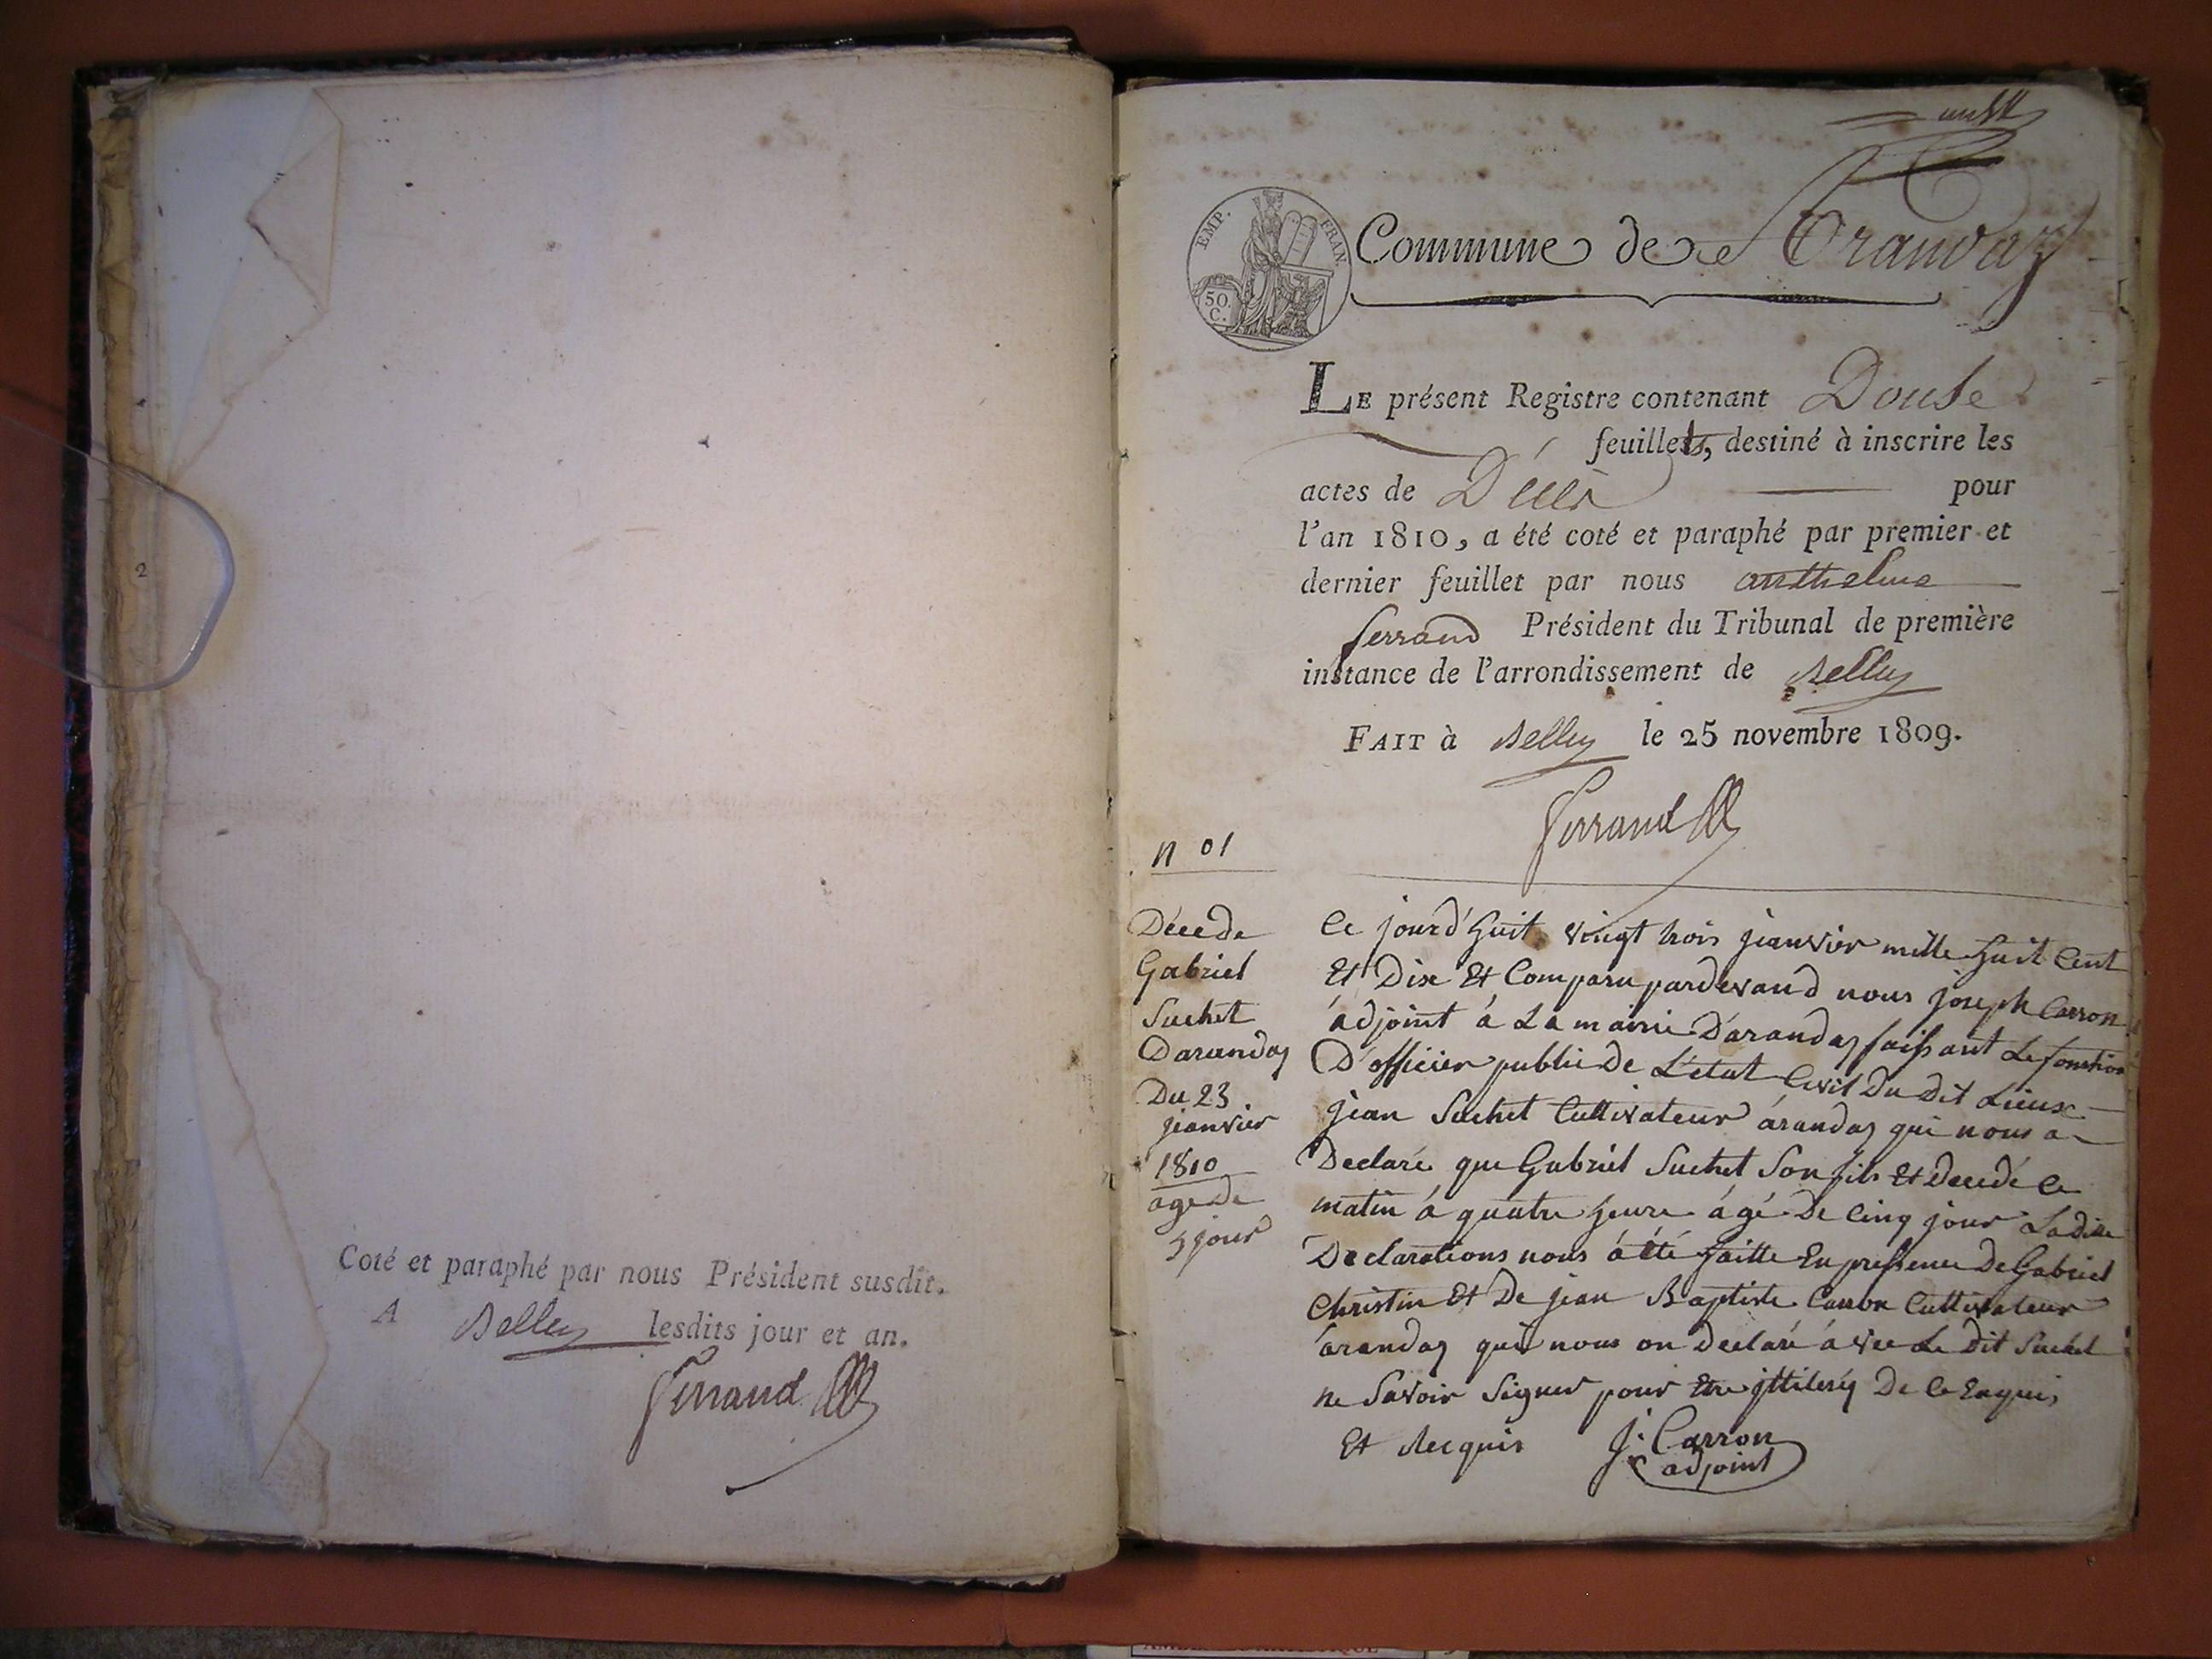 2
Coté et paraphé par nous Président susdit.
A Belley lesdits jour et an.
Ferrand
EMP. FRAN.
50. C.
Commune de
LE présent Registre contenant Douse
feuillets, destiné à inscrire les
actes de Décès pour
l'an 1810, a été coté et paraphé par premier et
dernier feuillet par nous anthelme
ferrand Président du Tribunal de première
instance de l'arrondissement de Belley
FAIT à Belley le 25 novembre 1809.
Ferrand
n 01
Décede
Gabriel
Suchet
Darandas
Du 23
jeanvier
1810
age de
5 jour
Ce jourd'huit vingt trois jeanvier mille huit Cent
Et Dix Et Comparu pardevand nous joseph Carron
adjoint à La mairie D'arandas faissant Le fonction
D'officier public De L'etat Civil Du Dit Lieux
jean Suchet Cultivateur árandas qui nous a
Declaré que Gabriel Suchet Son fils Et Decedé Ce
matin á quatre heure ágé De Cinq jour Ladite
Declarations nous á été faitte En pressence De Gabriel
Christin Et De jean Baptiste Carron Cultivateur
árandas qui nous on Declaré ávec Le Dit Suchet
ne Savoir Signer pour Etre De Ce Enquis
Et Requis J. Carron
adjoint